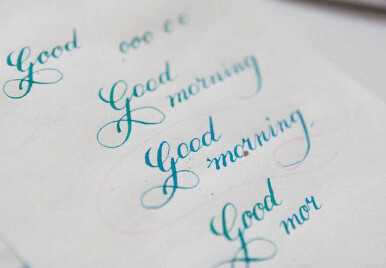 Good ooo c c
Good morning
Good morning.
Good mor